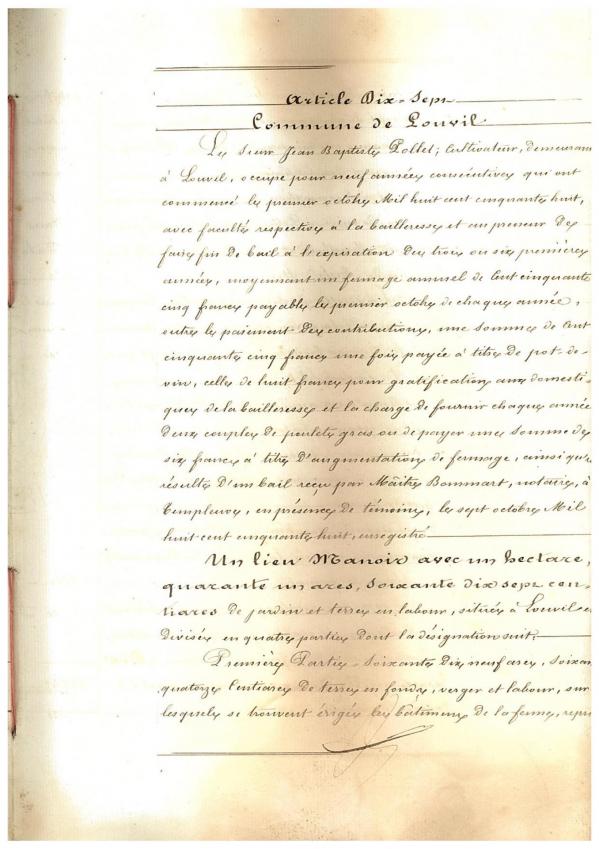 Article Dix-Sept
Commune de Louvil
Le sieur Jean Baptiste Pollet, cultivateur, demeurant
à Louvil, occupe pour neuf années consécutives qui ont
commencé le premier octobre Mil huit cent cinquante huit,
avec faculté respective à la bailleresse et au preneur de
faire fin de bail à l'expiration des trois ou six premières
années, moyennant un fermage annuel de Cent cinquante
cinq francs payable le premier octobre de chaque année,
outre le paiement des contributions, une somme de Cent
cinquante cinq francs une fois payée à titre de pot-de-
vin, celle de huit francs pour gratification aux domesti-
ques de la bailleresse et la charge de fournir chaque année
deux couples de poulets gras ou de payer une somme de
six francs à titre d'augmentation de fermage, ainsi qu'il
résulte d'un bail reçu par Maître Bommart, notaire, à
Templeuve, en présence de témoins, le sept octobre Mil
huit cent cinquante huit, enregistré
Un lieu Manoir avec un hectare,
quarante un ares, soixante dix sept cen-
tiares de jardin et terres en labour, situés à Louvil et
divisés en quatre parties dont la désignation suit.
Première Partie - Soixante dix neuf ares, soixan
quatorze Centiares de terres en fonds, verger et labour, sur
lesquels se trouvent érigés les bâtiments de la ferme, repri